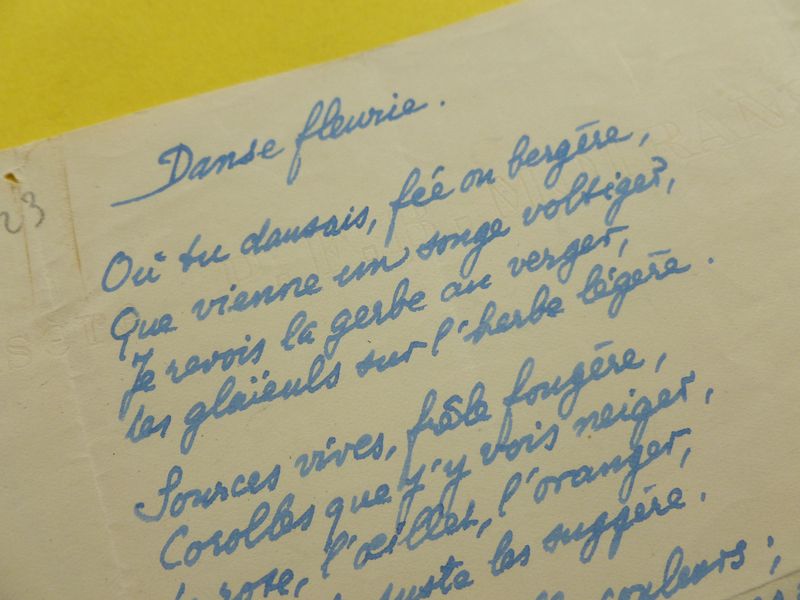 Danse fleurie.
23
Où tu dansais, fée ou bergère,
Que vienne un songe voltiger,
Je revois la gerbe au verger,
Les glaïeuls sur l'herbe légère.
Sources vives, frêle fougère,
Corolles que j'y vois neiger,
rose, l'œillet, l'oranger,
juste les suggère.
couleurs ;